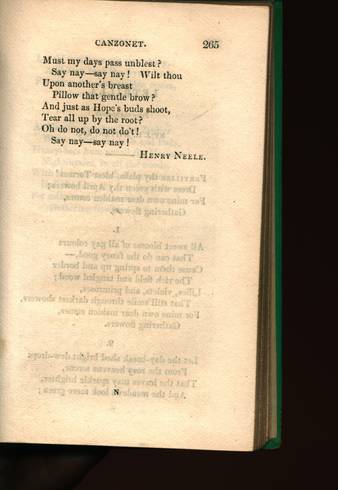 CANZONET. 265
Must my days pass unblest?
Say nay—say nay! Wilt thou
Upon another's breast
Pillow that gentle brow?
And just as Hope's buds shoot,
Tear all up by the root?
Oh do not, do not do't!
Say nay—say nay!
HENRY NEELE.
N